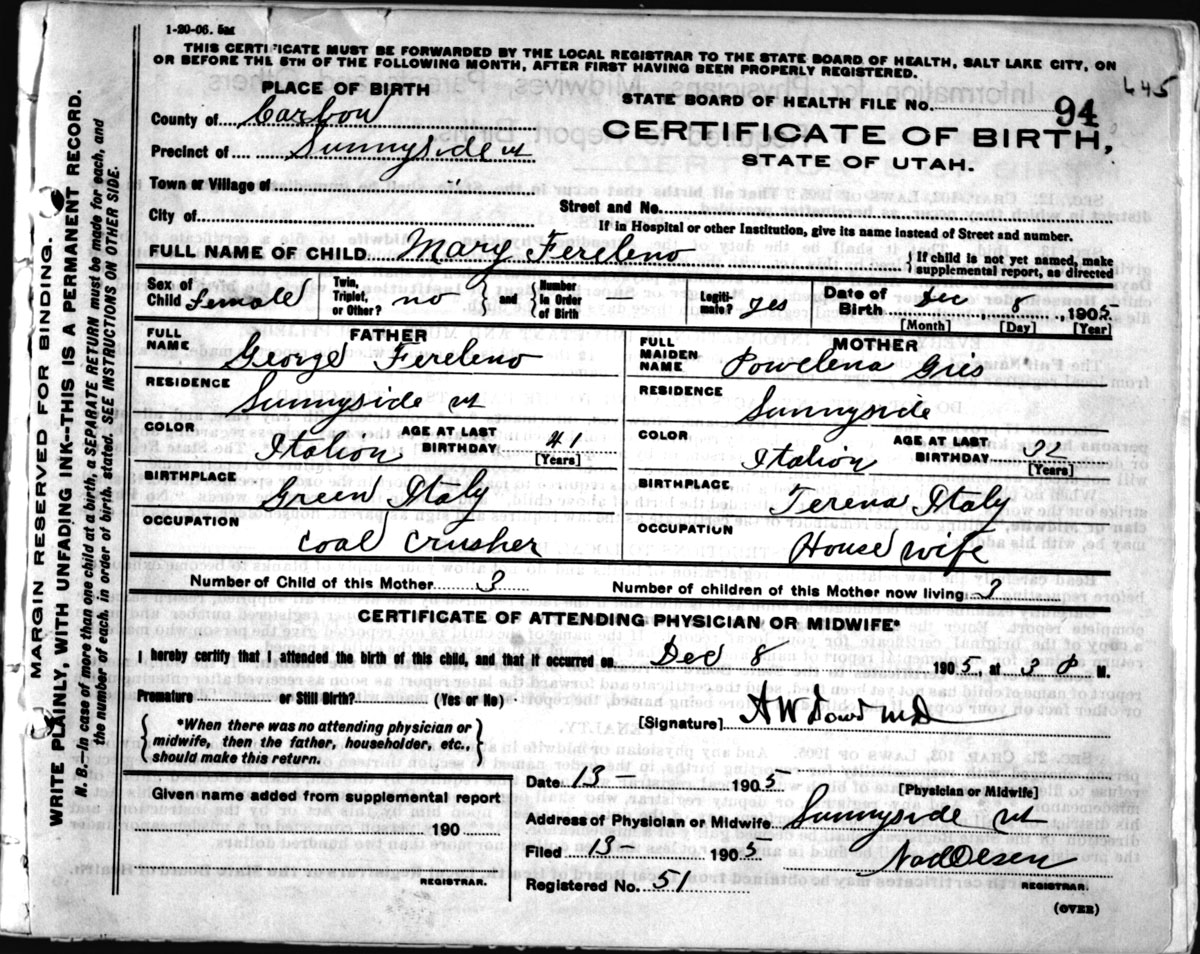 1-20-06. 5M
THIS CERTIFICATE MUST BE FORWARDED BY THE LOCAL REGISTRAR TO THE STATE BOARD OF HEALTH, SALT LAKE CITY, ON
OR BEFORE THE 5TH OF THE FOLLOWING MONTH, AFTER FIRST HAVING BEEN PROPERLY REGISTERED.
445
PLACE OF BIRTH
STATE BOARD OF HEALTH FILE NO. 94
County of Carbon
CERTIFICATE OF BIRTH,
Precinct of Sunnyside ut
STATE OF UTAH.
Town or Village of "
Street and No.
City of
If in Hospital or other Institution, give its name instead of Street and number.
FULL NAME OF CHILD Mary Fereleno
{ If child is not yet named, make
supplemental report, as directed
Sex of Child female
Twin, Triplet, or Other? no
{ and } Number in Order of Birth —
Legiti- mate? yes
Date of Birth Dec 8, 1905
[Month] [Day] [Year]
FATHER
FULL NAME George Fereleno
RESIDENCE
Sunnyside ut
COLOR Italion
AGE AT LAST BIRTHDAY 41
[Years]
BIRTHPLACE
Green Italy
OCCUPATION
Coal Crusher
MOTHER
FULL MAIDEN NAME Powelena Gris
RESIDENCE
Sunnyside
COLOR Italion
AGE AT LAST BIRTHDAY 32
[Years]
BIRTHPLACE
Terena Italy
OCCUPATION
House wife
Number of Child of this Mother 3
Number of children of this Mother now living 3
CERTIFICATE OF ATTENDING PHYSICIAN OR MIDWIFE*
I hereby certify that I attended the birth of this child, and that it occurred on Dec 8 1905 at 3 P. M.
Premature or Still Birth? (Yes or No)
{ *When there was no attending physician or
midwife, then the father, householder, etc.,
should make this return. }
[Signature] A W Dowd MD
Given name added from supplemental report
190
REGISTRAR.
Date 13 — 1905
[Physician or Midwife]
Address of Physician or Midwife Sunnyside ut
Filed 13 — 1905
Olsen
Registered No. 51
REGISTRAR.
(OVER)
MARGIN RESERVED FOR BINDING.
WRITE PLAINLY, WITH UNFADING INK--THIS IS A PERMANENT RECORD.
N. B.--In case of more than one child at a birth, a SEPARATE RETURN must be made for each, and
the number of each, in order of birth, stated. SEE INSTRUCTIONS ON OTHER SIDE.